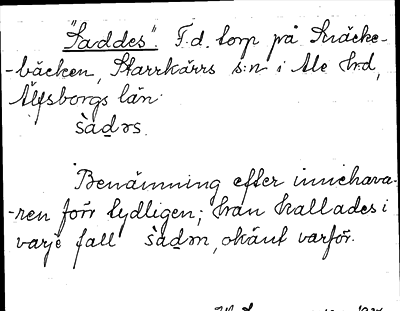 "Saddes". F.d. torp på Knäcke-
-bäcken, Starrkärrs s:n i Ale hd,
Älfsborgs län.
sàdəs.
Benämning efter innehava-
-ren förr tydligen; han kallades i
varje fall sàdən, okänt varför.